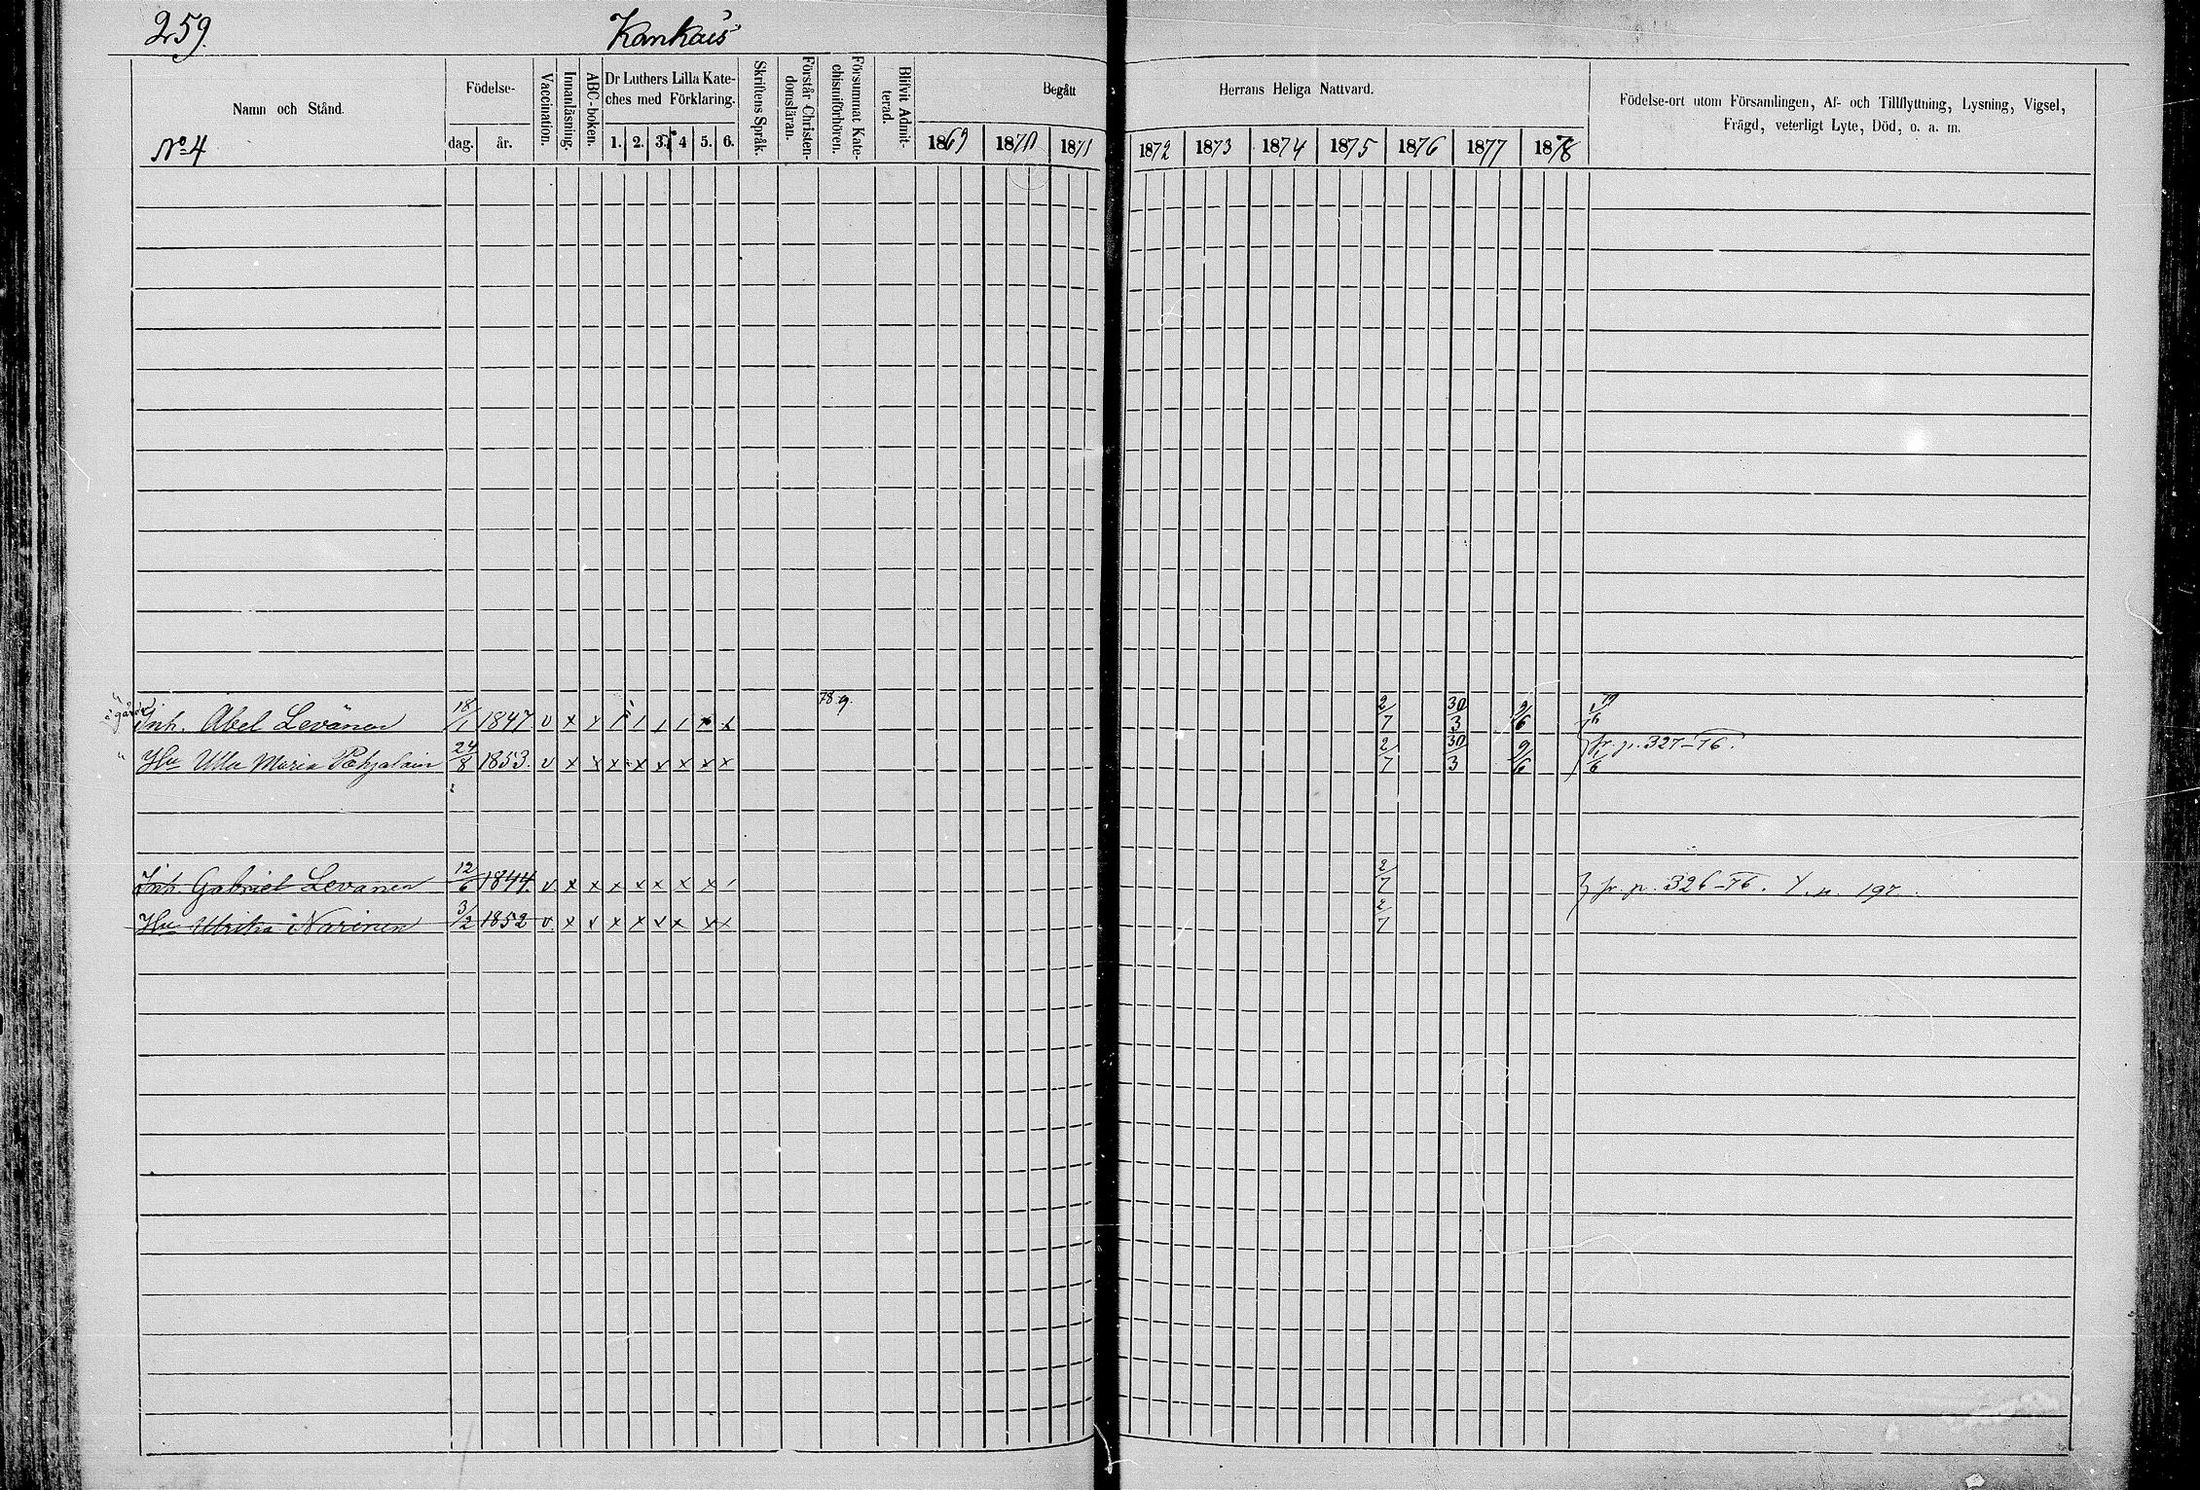 259.
Kankais
Namn och Stånd.
No 4
Födelse-
dag. år.
Vaccination.
Innanläsning.
ABC-boken.
Dr Luthers Lilla Kate-
ches med Förklaring.
1. 2. 3. 4 5. 6.
Skriftens Språk.
Förstår Christen-
domsläran.
Försummat Kate-
chismiförhören.
Blifvit Admit-
terad.
Begått Herrans Heliga Nattvard.
1869 1870 1871 1872 1873 1874 1875 1876 1877 1878
Födelse-ort utom Församlingen, Af- och Tillflyttning, Lysning, Vigsel,
Frägd, veterligt Lyte, Död, o. a. m.
Inh. Abel Levänen 18/1 1847 v x x 1 1 1 1 x x 78 9. 2/7 30/3 9/6
Hu Ulla Maria Pohjalain 24/8 1853. v x x x x x x x x 2/7 30/3 9/6 fr. p. 327-76.
Inh. Gabriel Levanen 12/6 1844 v x x x x x x x 2/7 fr. p. 326-76. Y. n. 197
Hu Ulrika Narinen 3/2 1852 v x x x x x x x x 2/7